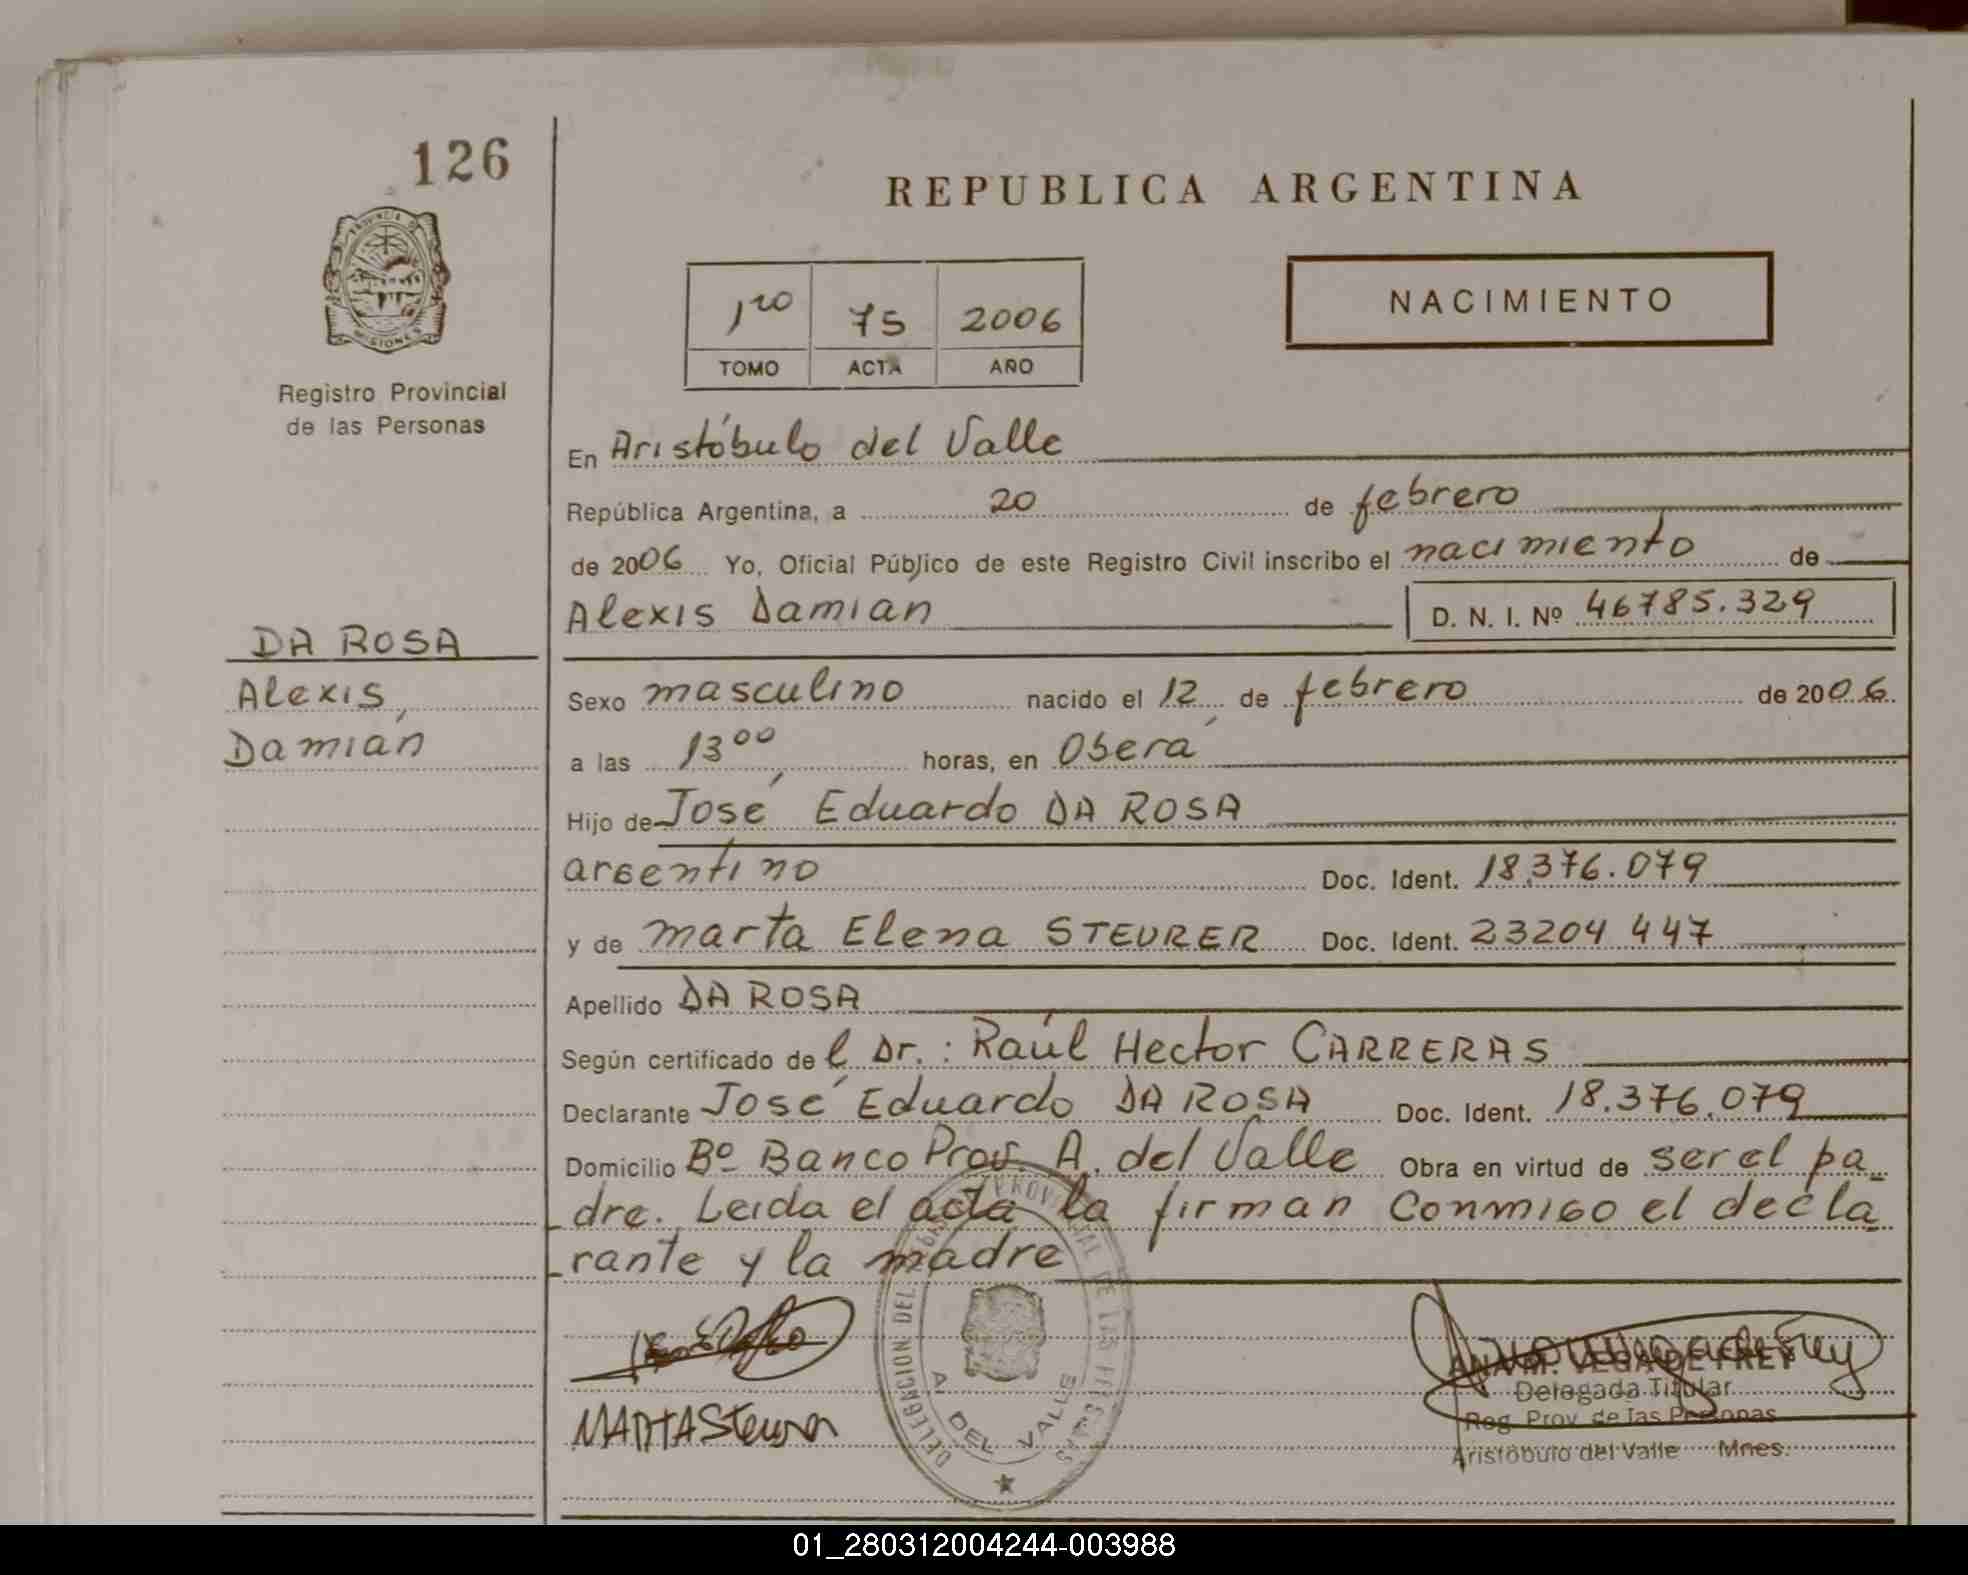 126
PROVINCIA DE
MISIONES
Registro Provincial
de las Personas
DA ROSA
Alexis
Damián
REPUBLICA ARGENTINA
1ro 75 2006
TOMO ACTA AÑO
NACIMIENTO
En Aristóbulo del Valle
República Argentina, a 20 de febrero
de 2006 Yo, Oficial Público de este Registro Civil inscribo el nacimiento de
Alexis Damian D. N. I. Nº 46785.329
Sexo masculino nacido el 12 de febrero de 2006
a las 13 00 horas, en Oberá
Hijo de José Eduardo DA ROSA
argentino Doc. Ident. 18.376.079
y de Marta Elena STEURER Doc. Ident. 23204 447
Apellido DA ROSA
Según certificado de l Dr.: Raúl Hector CARRERAS
Declarante José Eduardo DA ROSA Doc. Ident. 18.376.079
Domicilio Bº Banco Prov. A. del Valle Obra en virtud de ser el pa
dre. Leida el acta la firman conmigo el decla
rante y la madre
DELEGACION DEL PROVINCIAL DE LAS PERSONAS
A. DEL VALLE
MARTA Steurer
ANA M. VEGA DE FREY
Delegada Titular
Reg. Prov. de las Personas
Aristóbulo del Valle Mnes.
01_280312004244-003988